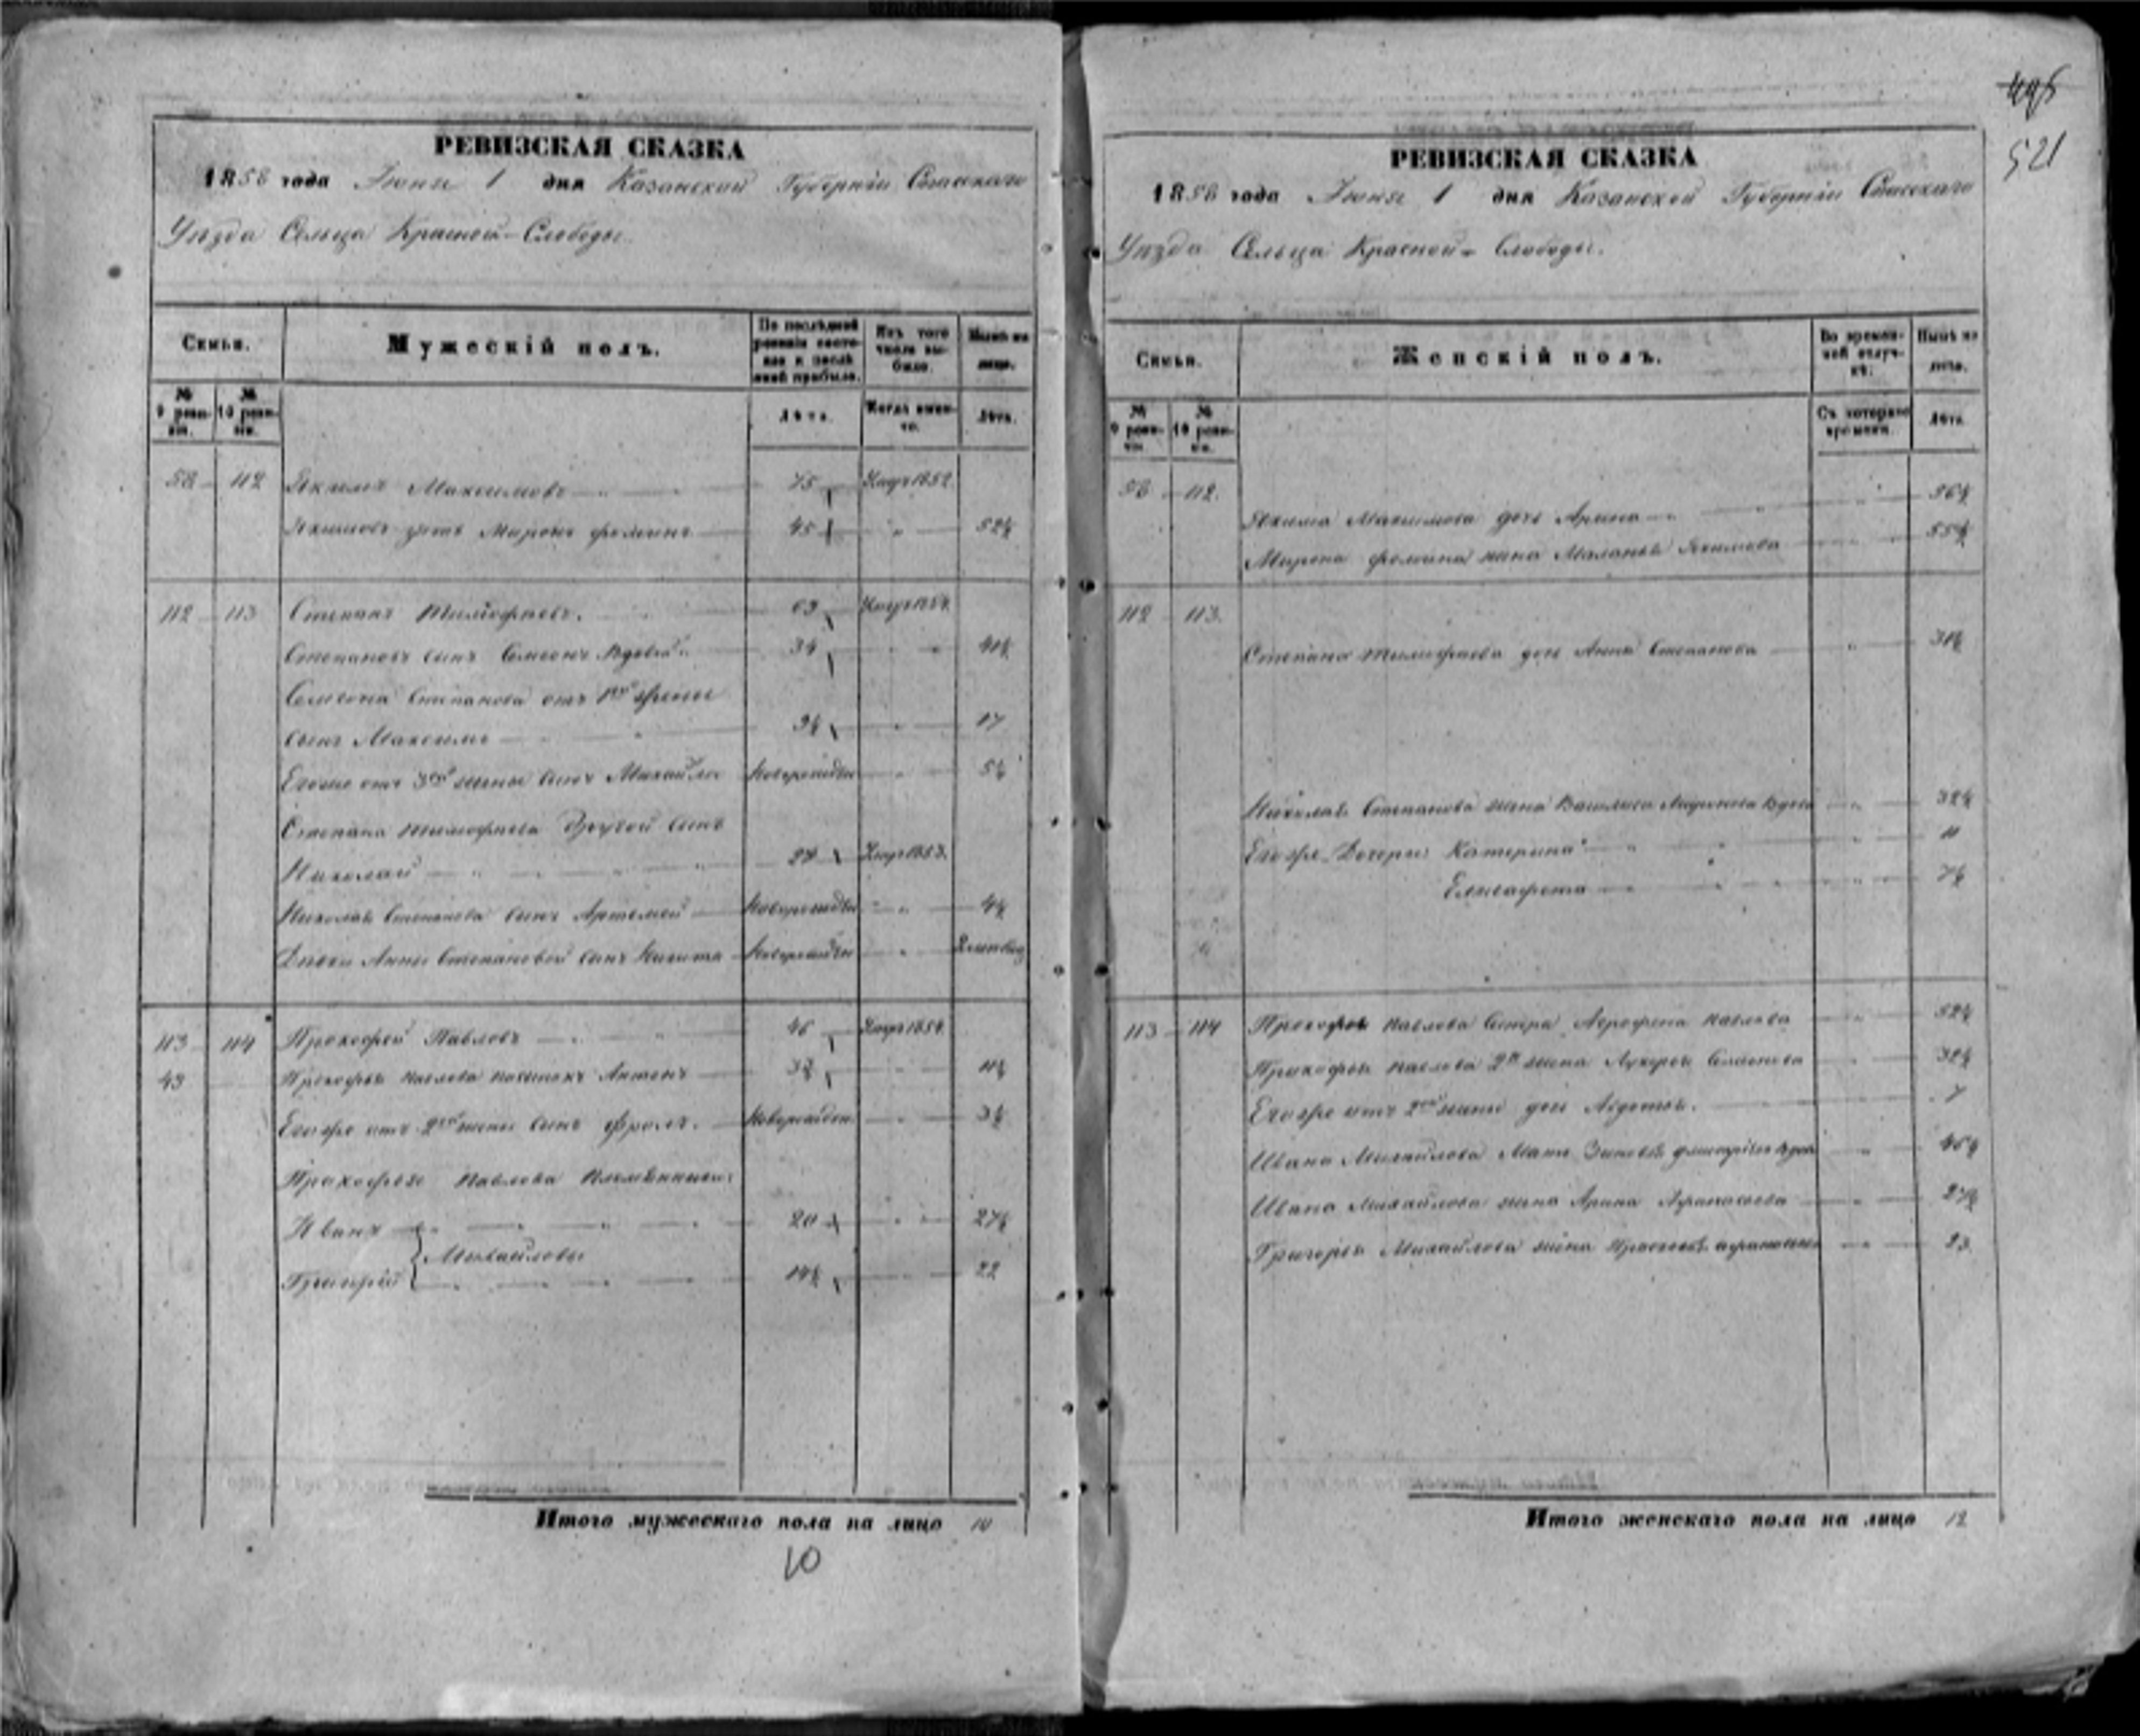 РЕВИЗСКАЯ СКАЗКА
1858 года Июня 1 дня Казанской Губернiи Спасскаго
Уѣзда Сельца Красной-Слободы.
Семьи.
Мужескій полъ.
По послѣдней ревизіи состояло и послѣ оной прибыло.
Изъ того числа выбыло.
Нынѣ на лицо.
№ 9 ревизіи.
№ 10 ревизіи.
Лѣта.
Когда именно.
Лѣта.
58 112 Якимъ Максимовъ 75 Умеръ 1852.
Якимовъ зять Миронъ Фоминъ 45 52½
112 113 Степанъ Тимофѣевъ. 63
Степановъ сынъ Семенъ Вдовый 34 41½
Семена Степанова отъ 1ой жены
сынъ Максимъ 17
Егоже отъ 3ей жены сынъ Михайло Новорожден 5½
Степана Тимофѣева другой сынъ
Николай Умеръ 1853.
Николая Степанова сынъ Артемей Новорожден 4½
Дѣвки Анны Степановой сынъ Никита Новорожден
113 114 Прокофей Павловъ 46 Умеръ 1854.
43 Прокофья Павлова Антонъ
Егоже отъ 2ой жены сынъ Фролъ. Новорожден 3½
Прокофья Павлова Племянники:
Иванъ 20 27½
Михайловы
Григорій 14½ 22
Итого мужескаго пола на лицо 10
10
495
521
РЕВИЗСКАЯ СКАЗКА
1858 года Июня 1 дня Казанской Губернiи Спасскаго
Уѣзда Сельца Красной-Слободы.
Семьи.
Женскій полъ.
Во временной отлучкѣ.
Нынѣ на лицо.
№ 9 ревизіи.
№ 10 ревизіи.
Съ котораго времени.
Лѣта.
58 112.
Якима Максимова дочь Арина 36½
Мирона Фомина жена Маланья Якимова 55½
112 113.
Степана Тимофѣева дочь Анна Степанова 31½
Николая Степанова жена Василиса Вдова 32½
Егоже Дочери: Катерина 11
Елисафета 7½
113 114 Прокофья Павлова Сестра Аграфена Павлова 52½
Прокофья Павлова 2я жена Лукерья Семенова 32½
Егоже отъ 2ой жены дочь Авдотья. 7
Ивана Михайлова Мать Зиновья Дмитріева Вдова 46½
Ивана Михайлова жена Арина Афанасьева 27½
Григорья Михайлова жена Прасковья 23
Итого женскаго пола на лицо 12